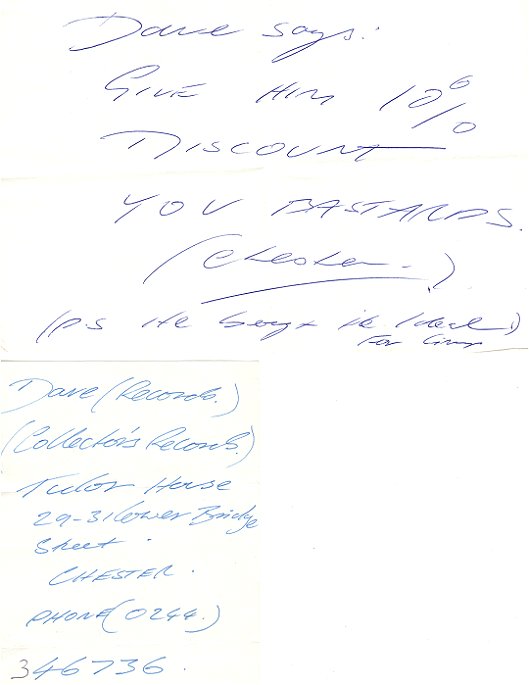 Dave says:
GIVE HIM 10%
DISCOUNT
YOU BASTARDS.
(Chester.)
(P.S He buys
For
Dave (Records.)
(Collectors Records.)
Tudor House
29-31 Lower Bridge
Street.
CHESTER.
PHONE (0244.)
346736.